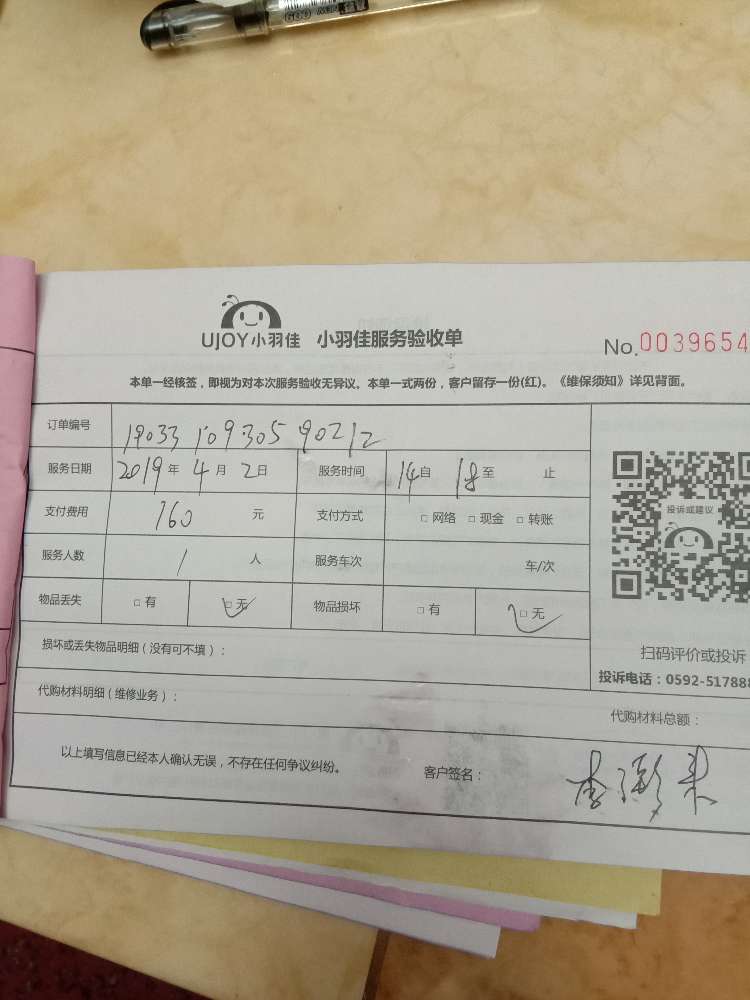 UJOY小羽佳 小羽佳服务验收单
No.0039654
本单一经核签，即视为对本次服务验收无异议。本单一式两份，客户留存一份(红)。《维保须知》详见背面。
订单编号 19033 109305 90212
服务日期 2019年 4月 2日 服务时间 14自 18至 止
支付费用 160 元 支付方式 □ 网络 □ 现金 □ 转账
投诉或建议
服务人数 1 人 服务车次 车/次
物品丢失 □ 有 □ 无 物品损坏 □ 有 □ 无
损坏或丢失物品明细（没有可不填）：
扫码评价或投诉
投诉电话：0592-517888
代购材料明细（维修业务）：
代购材料总额：
以上填写信息已经本人确认无误，不存在任何争议纠纷。 客户签名：